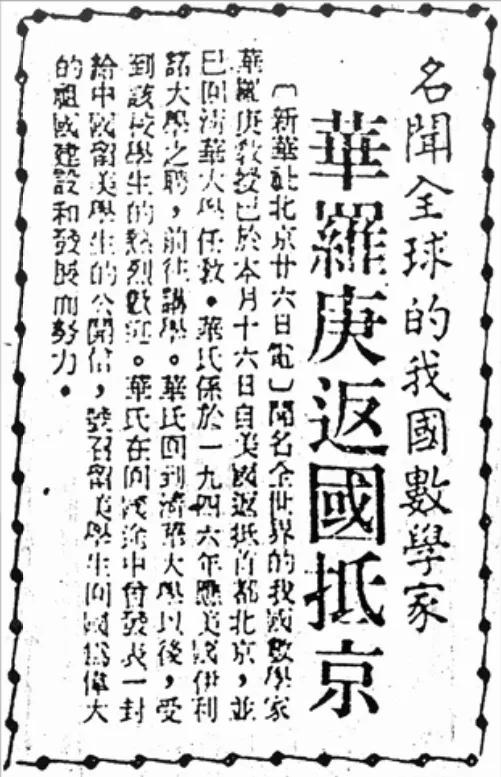 名聞全球的我國數學家
華羅庚返國抵京
〔新華社北京廿六日電〕聞名全世界的我國數學家
華羅庚敎授已於本月十六日自美國返抵首都北京，並
已回淸華大學任敎。華氏係於一九四六年應美國伊利
諾大學之聘，前往講學。華氏回到淸華大學以後，受
到該校學生的熱烈歡迎。華氏在回國途中曾發表一封
給中國留美學生的公開信，號召留美學生回國爲偉大
的祖國建設和發展而努力。